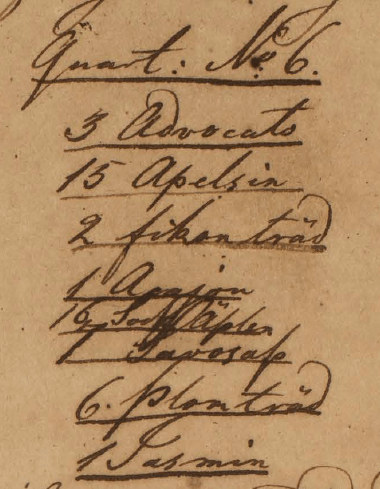 Quart: No 6.
3 Advocats
15 Apelsin
2 fikonträd
1 Acajou
16 Äplen
1
6. Plomträd
1 Jasmin